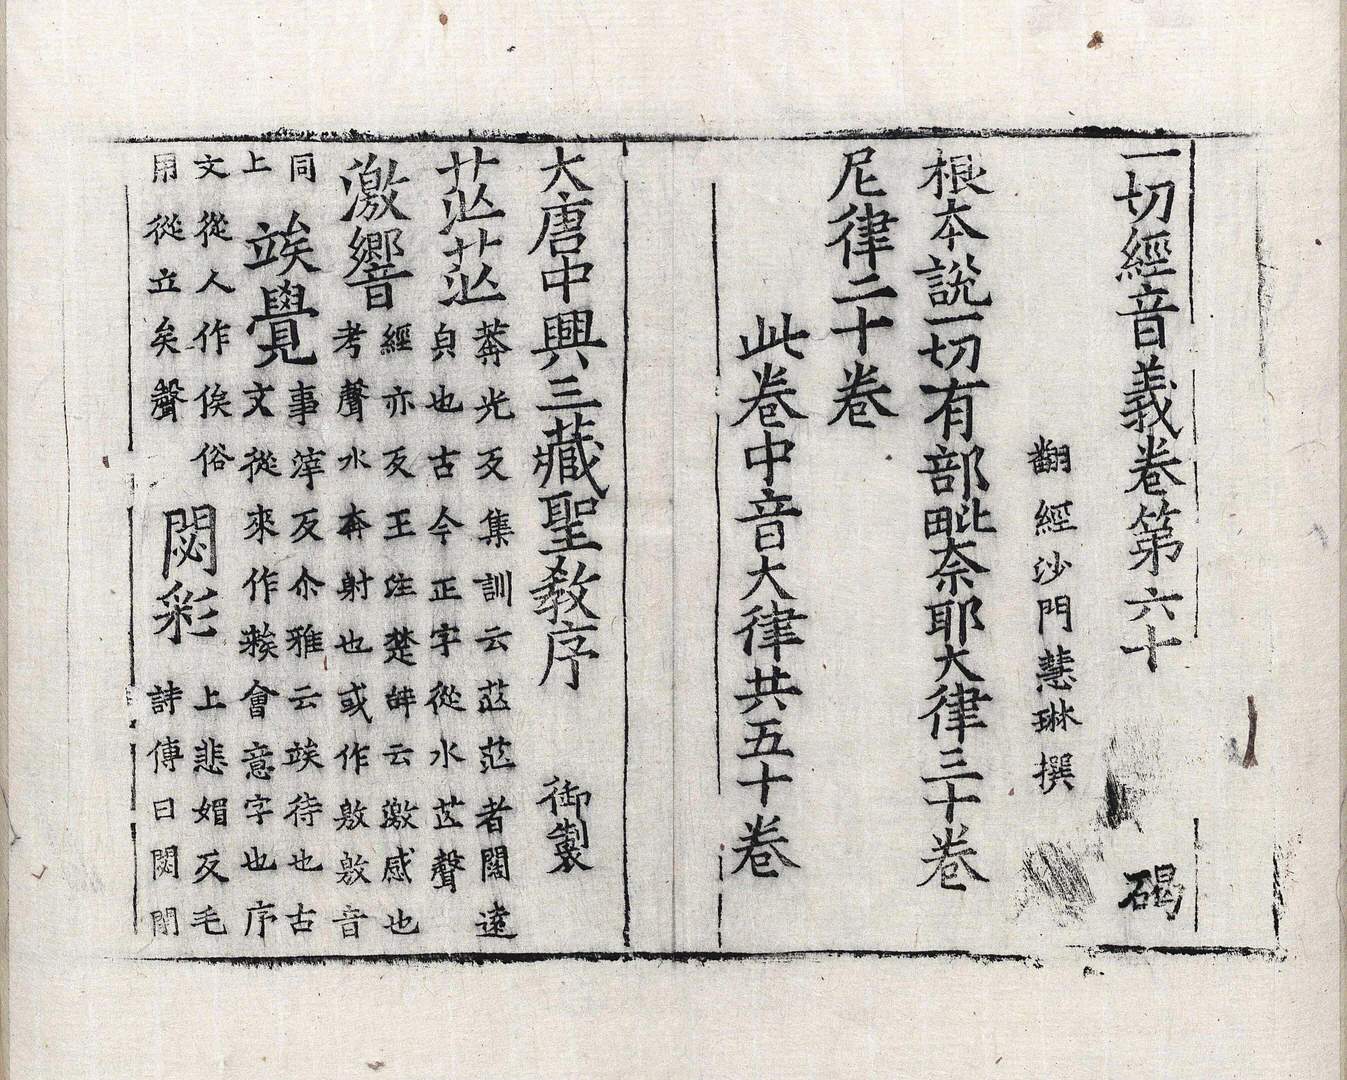 一切經音義卷第六十 碣
翻經沙門慧琳撰
根本說一切有部毗奈耶大律三十卷
尼律二十卷
此卷中音大律共五十卷
大唐中興三藏聖敎序 御製
茫茫 莾光反集訓云茫茫者闊遠
皃也古今正字從水芒聲
激響 經亦反王注楚辝云激感也
考聲水奔射也或作敫敫音
同 竢覺 事滓反尒雅云竢待也古
上 文從來作𥡆會意字也序
文從人作俟俗 閟彩 上悲媚反毛
用從立矣聲 詩傳曰閟閉